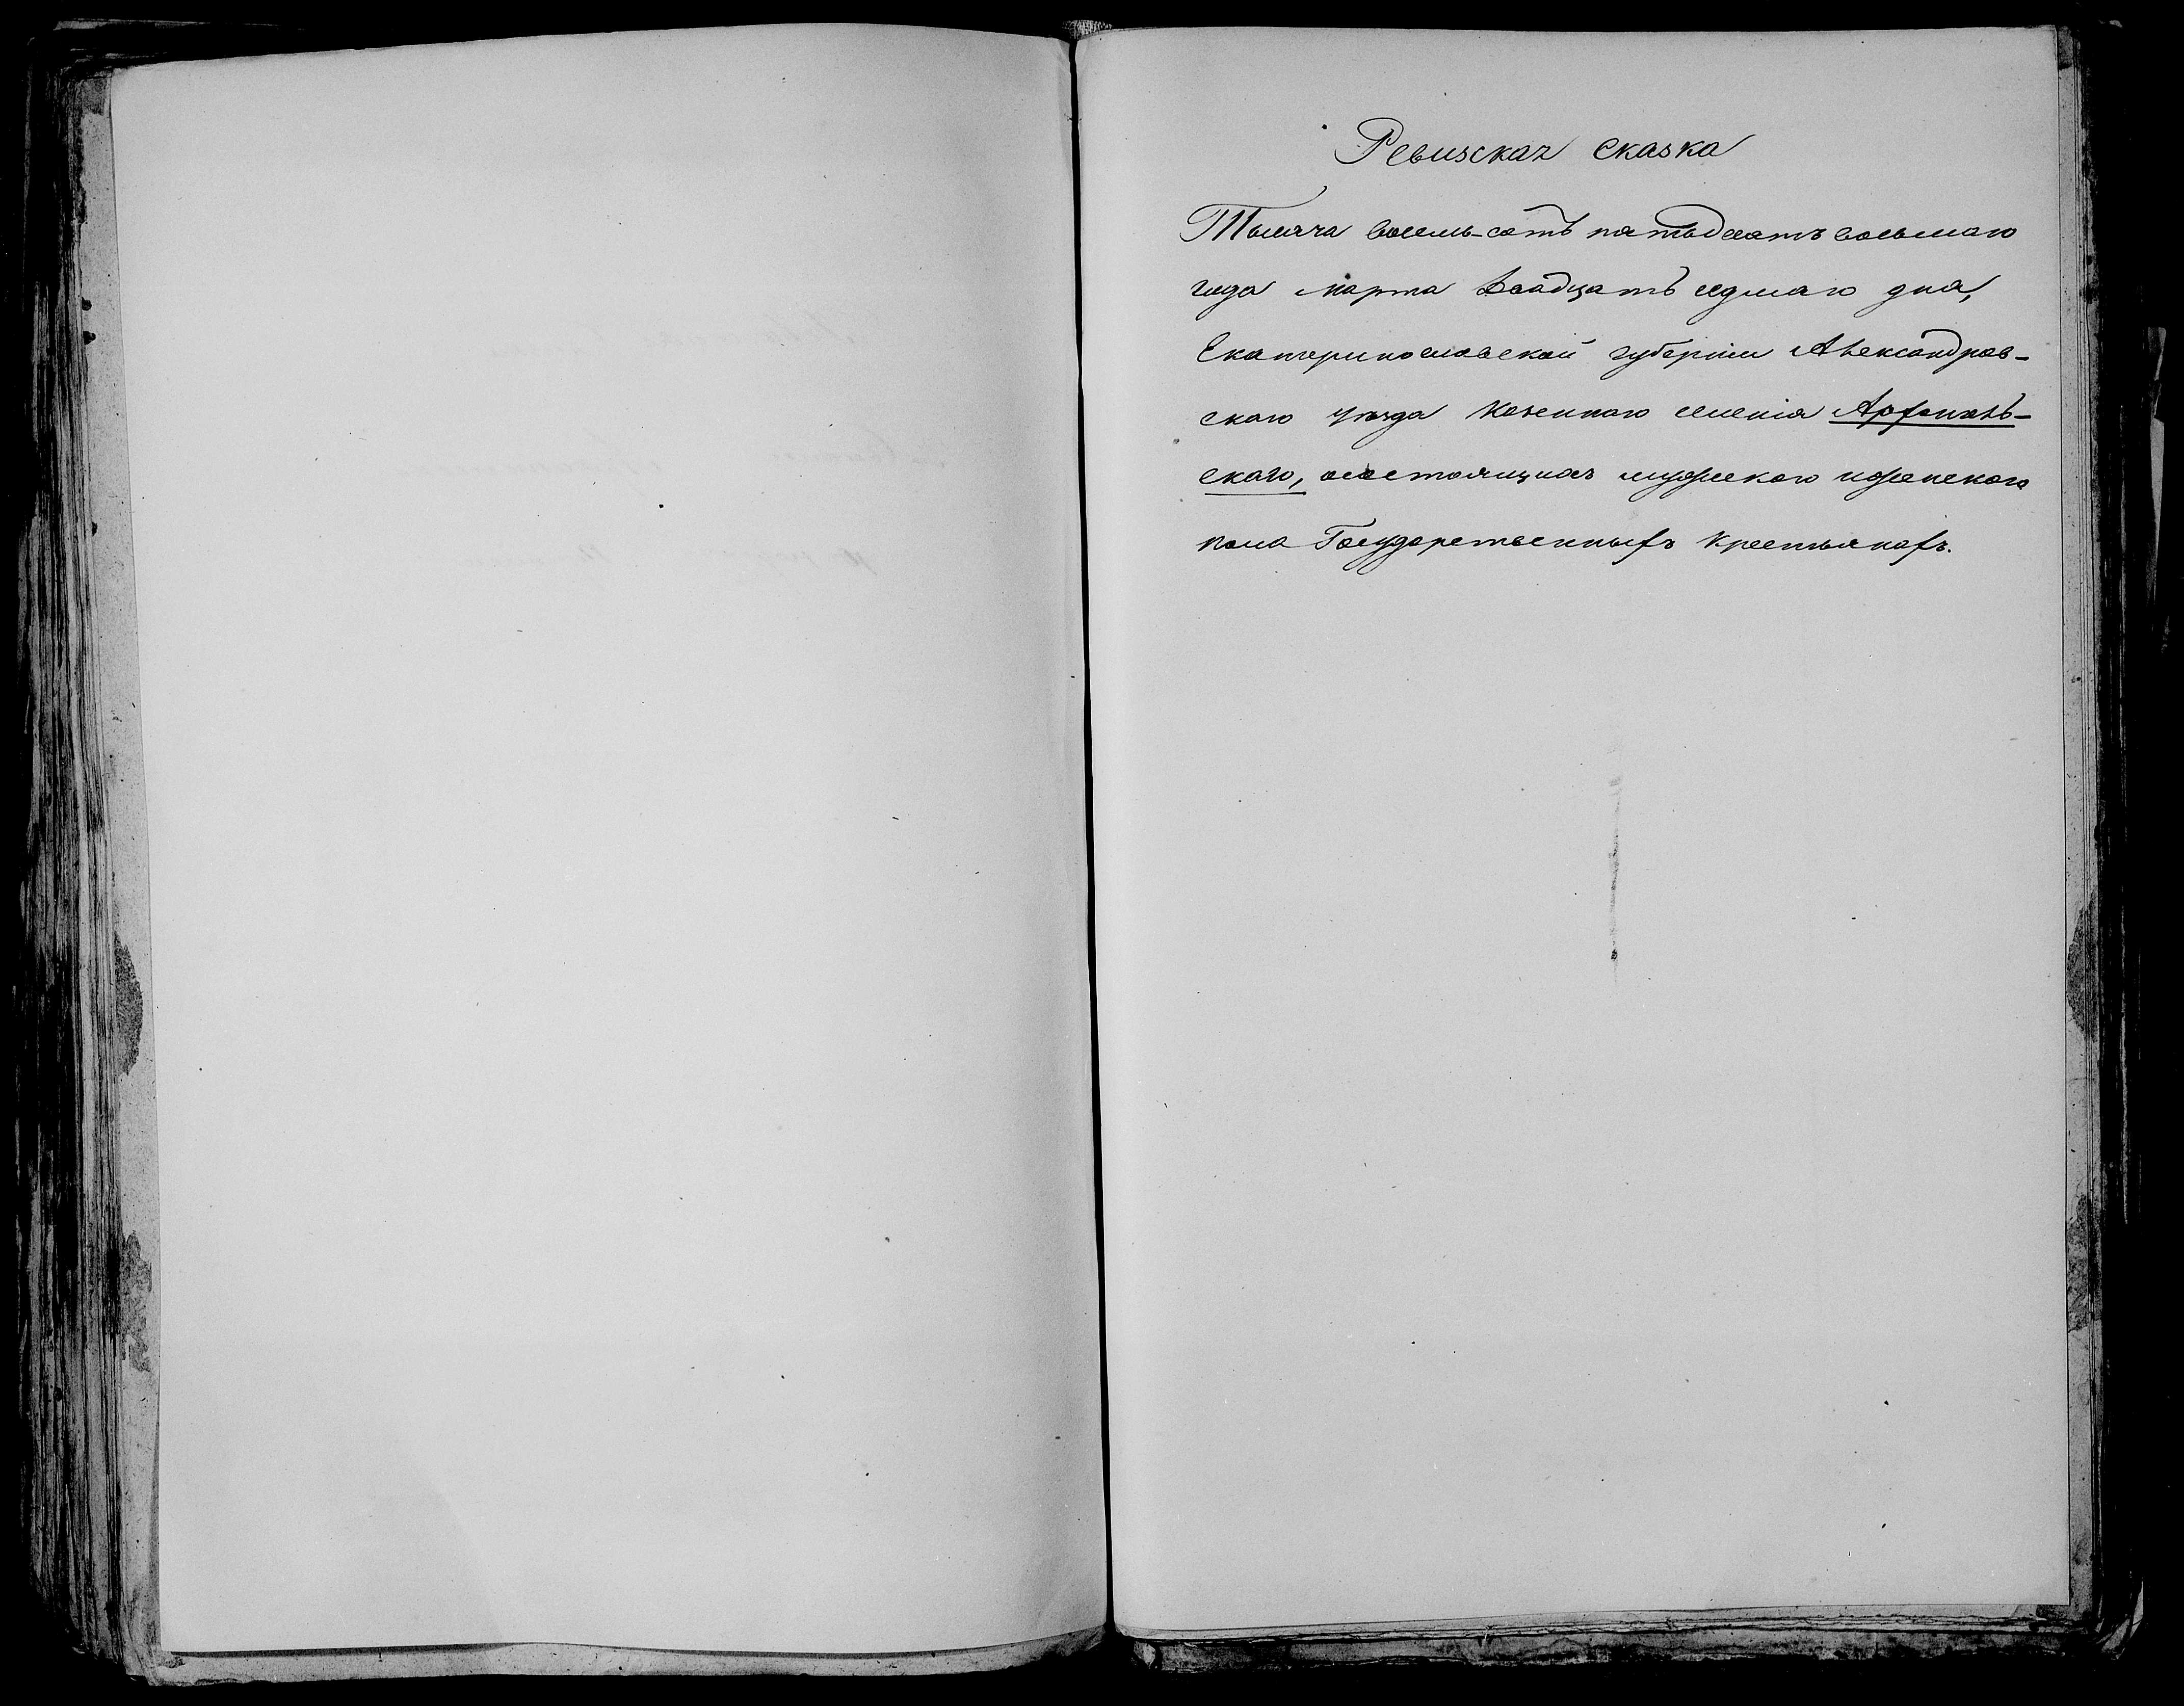 Ревизская сказка
Тысяча восемь-сотъ пятьдесятъ восьмаго
года марта двадцать седмаго дня,
Екатеринославской губерніи Александров-
скаго уѣзда казеннаго селенія Архангель-
скаго, о состоящихъ мужеска и женскаго
пола Государственныхъ крестьянахъ.